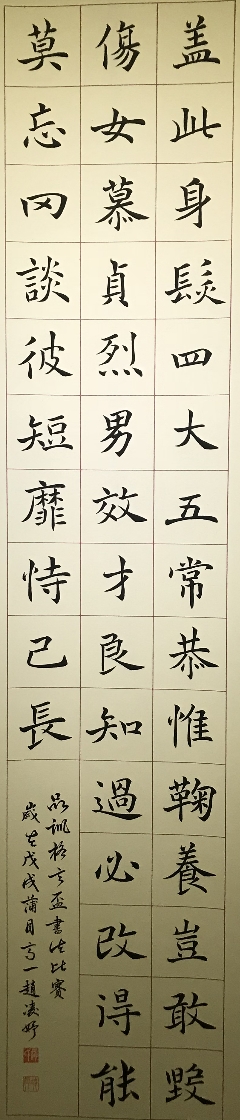 盖此身髮四大五常恭惟鞠養豈敢毀
傷女慕貞烈男效才良知過必改得能
莫忘罔談彼短靡恃己長
格言盃書法比賽
歲在戊戌蒲月高一趙凌妤